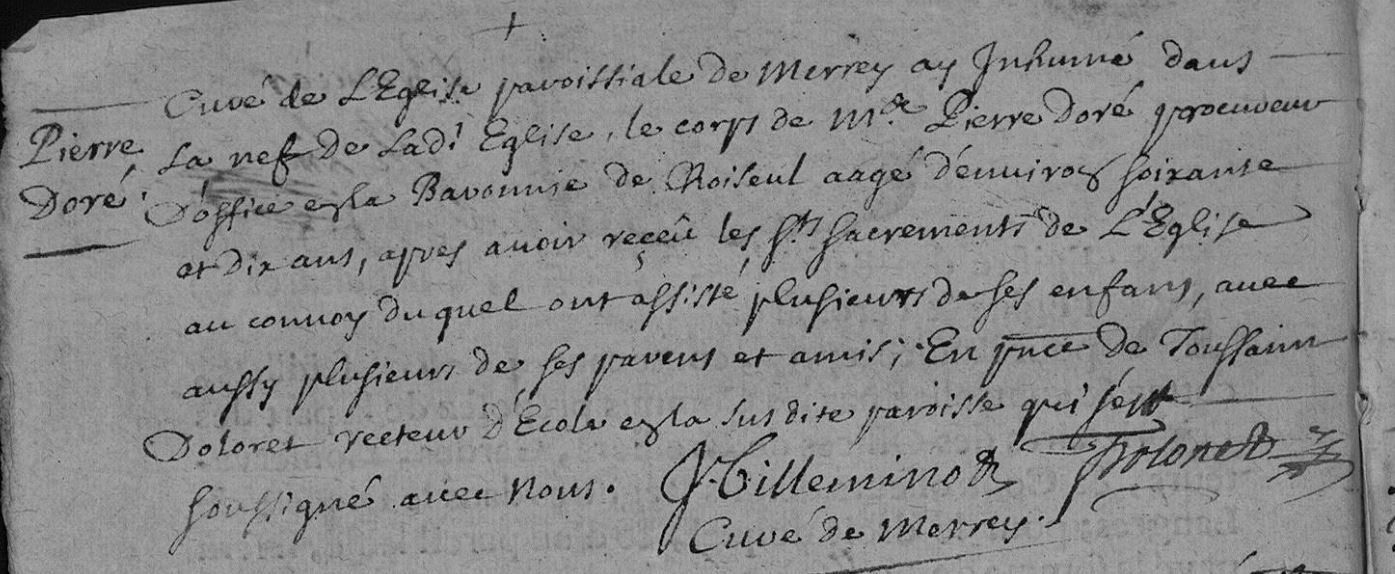 Curé de L'Eglise paroissiale de Merrey ay Inhumé dans
Pierre
Doré.
La nef de Ladt Eglise, le corps de Mre Pierre Doré procureur
D'office en la Baronnie de Choiseul aagé d'environ soixante
et Dix ans, apres avoir reçeû les Sts sacrements de L'Eglise
au convoy du quel ont assisté plusieurs de ses enfans, avec
aussy plusieurs de ses parens et amis; En pnce de Toussainct
Doloret recteur d'Ecole en la sus dite paroisse qui s'est
soussigné avec Nous. Villeminot Doloret
Curé de Merrey.